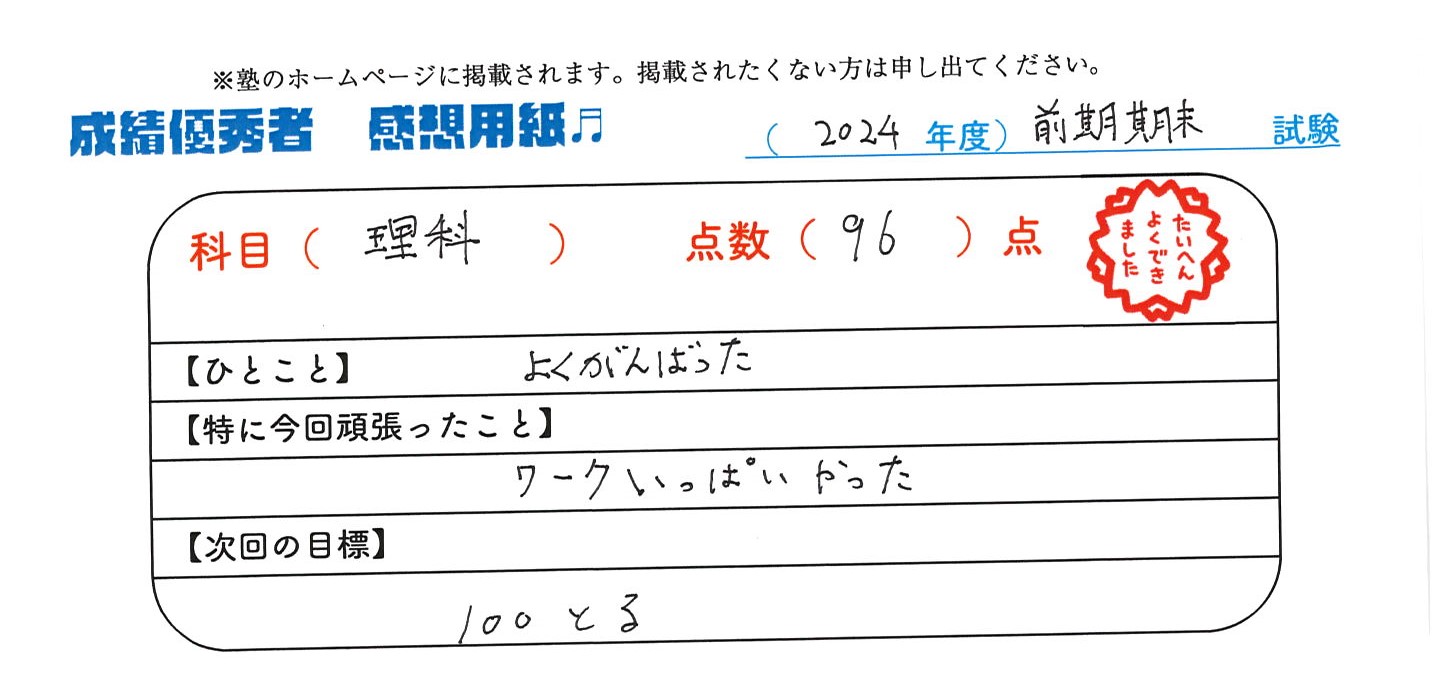 ※塾のホームページに掲載されます。掲載されたくない方は申し出てください。
成績優秀者 感想用紙♬ (2024年度)前期期末 試験
科目(理科) 点数(96)点
たいへん
よくでき
ました
【ひとこと】 よくがんばった
【特に今回頑張ったこと】
ワークいっぱいやった
【次回の目標】
100とる